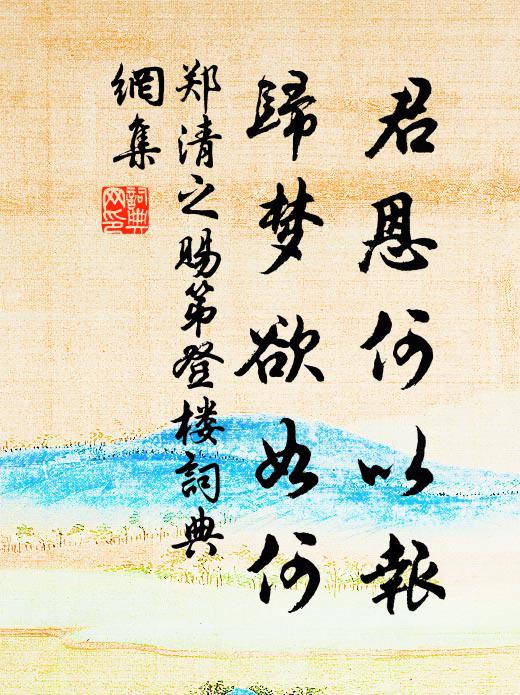 君恩何以報
歸梦欲如何
郑清之賜第登楼詞典
網集
詞典网印